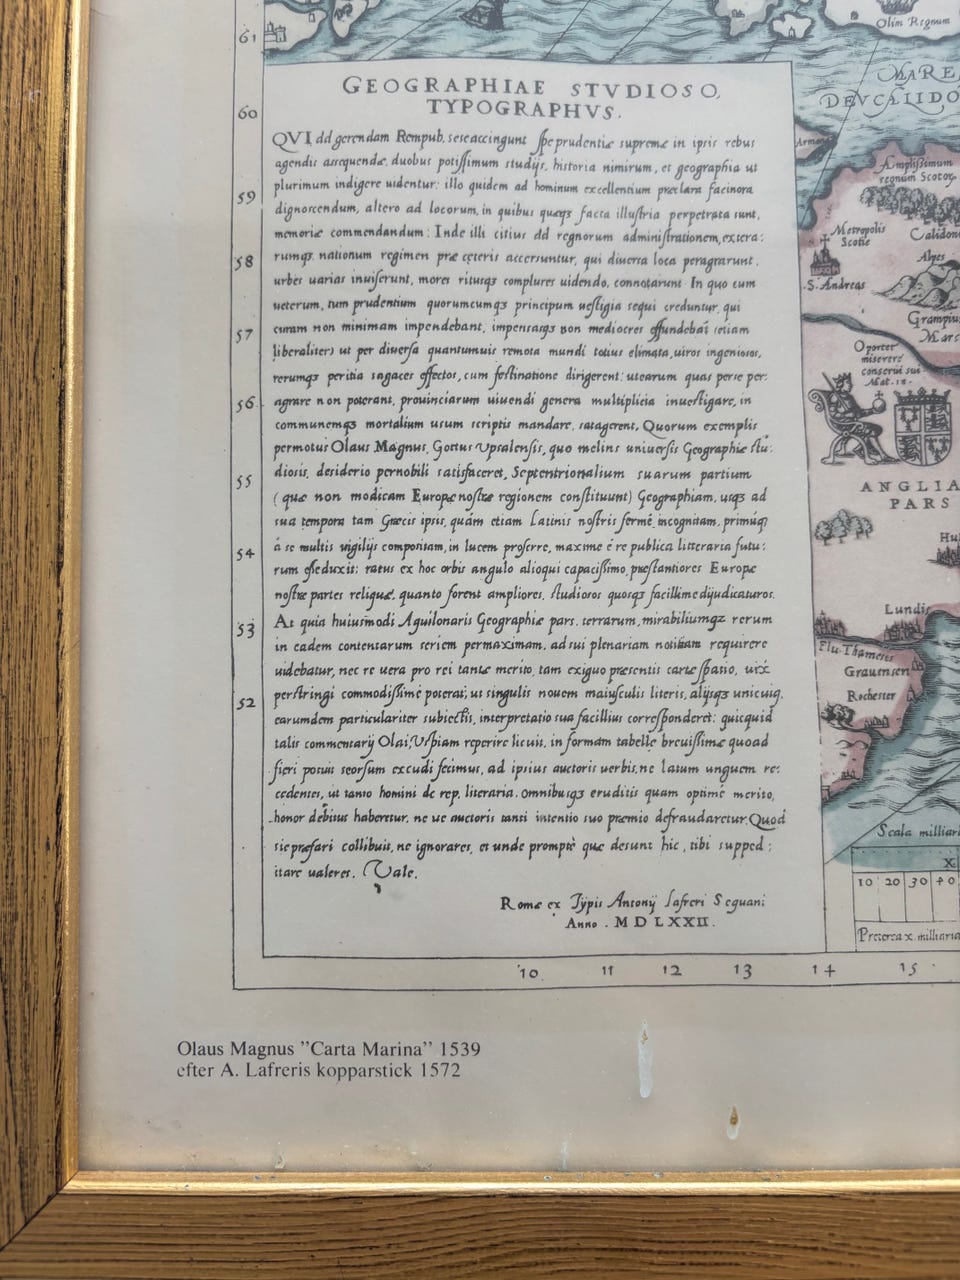 61
60
59
58
57
56
55
54
53
52
GEOGRAPHIAE STVDIOSO,
TYPOGRAPHVS.
QVI ad gerendam Rempub. sese accingunt spe prudentiæ supremæ in ipsis rebus
agendis assequendæ, duobus potissimum studijs, historia nimirum, et geographia ut
plurimum indigere uidentur: illo quidem ad hominum excellentium præclara facinora
dignoscendum, altero ad locorum, in quibus quæqȝ facta illustria perpetrata sunt,
memoriæ commendandum: Inde illi citius ad regnorum administrationem, extera:
rumqȝ nationum regimen præ ceteris accersuntur, qui diuersa loca peragrarunt,
urbes uarias inuiserunt, mores ritusqȝ complures uidendo, connotarunt. In quo cum
ueterum, tum prudentium quorumcumqȝ principum uestigia sequi creduntur, qui
curam non minimam impendebant, impensasqȝ non mediocres effundebāt (etiam
liberaliter) ut per diuersa quantumuis remota mundi totius climata, uiros ingeniosos,
rerumqȝ peritia sagaces effectos, cum festinatione dirigerent: ut earum quas per se per:
agrare non poterant, prouinciarum uiuendi genera multiplicia inuestigare, in
communemqȝ mortalium usum scriptis mandare, satagerent. Quorum exemplis
permotus Olaus Magnus, Gottus Vpsalensis, quo melius uniuersis Geographiæ stu:
diosis, desiderio pernobili satisfaceret, Septentrionalium suarum partium
(quæ non modicam Europæ nostræ regionem constituunt) Geographiam, usqȝ ad
sua tempora tam Græcis ipsis, quám etiam Latinis nostris fermé incognitam, primúqȝ
á se multis uigilijs compositam, in lucem proferre, maxime é re publica litteraria futu:
rum esse duxit: ratus ex hoc orbis angulo alioqui capacissimo, præstantiores Europæ
nostræ partes reliquæ, quanto forent ampliores, studiosos quosqȝ facillime dijudicaturos.
At quia huiusmodi Aquilonaris Geographiæ pars, terrarum, mirabiliumqȝ rerum
in eadem contentarum seriem permaximam, ad sui plenariam notitiam requirere
uidebatur, nec re uera pro rei tantæ merito, tam exiguo præsentis cartæ spatio, uix
perstringi commodissimé poterat; ut singulis nouem maiusculis literis, alijsqȝ unicuiq.
earumdem particulariter subiectis, interpretatio sua facillius corresponderet: quicquid
talis commentarij Olai, Vspiam reperire licuit, in formam tabellæ breuissimæ quoad
fieri potuit seorsum excudi fecimus, ad ipsius auctoris uerbis, ne latum unguem re:
cedentes, ut tanto homini de rep. literaria, omnibusqȝ eruditis quam optimé merito,
honor debitus haberetur, ne ue auctoris tanti intentio suo præmio defraudaretur. Quod
sic præfari collibuit, ne ignorares, et unde promptè quæ desunt hic, tibi supped:
itare ualeres. Vale.
Romæ ex Typis Antonij Lafreri Sequani
Anno . M D LXXII.
Olim Regnum
MARE
DEVCALIDO
Amplissimum
regnum Scotor.
Metropolis
Scotie
S. Andreas
Calidon
Alpes
Grampius
Mars
Oportet
misereri
conserui sui
Mat. 18.
ANGLIA
PARS
Hu
Lundis
Flu. Thamesis
Grauensen
Rochester
Scala milliari
X
10 20 30 40
Preterea x. milliaria
10 11 12 13 14 15
Olaus Magnus ”Carta Marina” 1539
efter A. Lafreris kopparstick 1572